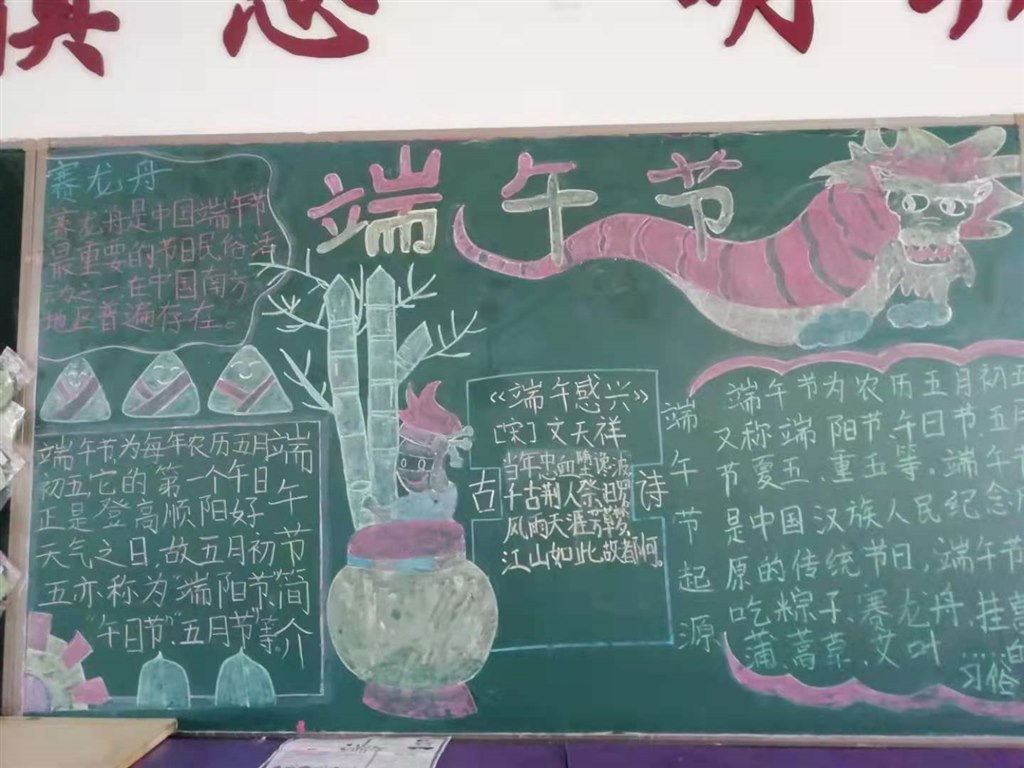 端午节
赛龙舟
赛龙舟是中国端午节
最重要的节日民俗活
动之一,在中国南方
地区普遍存在。
端午节为每年农历五月
初五,它的第一个午日
正是登高顺阳好
天气之日,故五月初
五亦称为“端阳节”
“午日节”、五月节”等。
端午节简介
《端午感兴》
[宋]文天祥
当年忠血堕谗波
千古荆人祭汨罗
风雨天涯芳草梦
江山如此故都何。
古诗
端午节起源
端午节为农历五月初五
又称端阳节、午日节、五月
节、夏五、重五等。端午节
是中国汉族人民纪念
原的传统节日,端午节
吃粽子、赛龙舟、挂
蒲、蒿草、艾叶……的
习俗